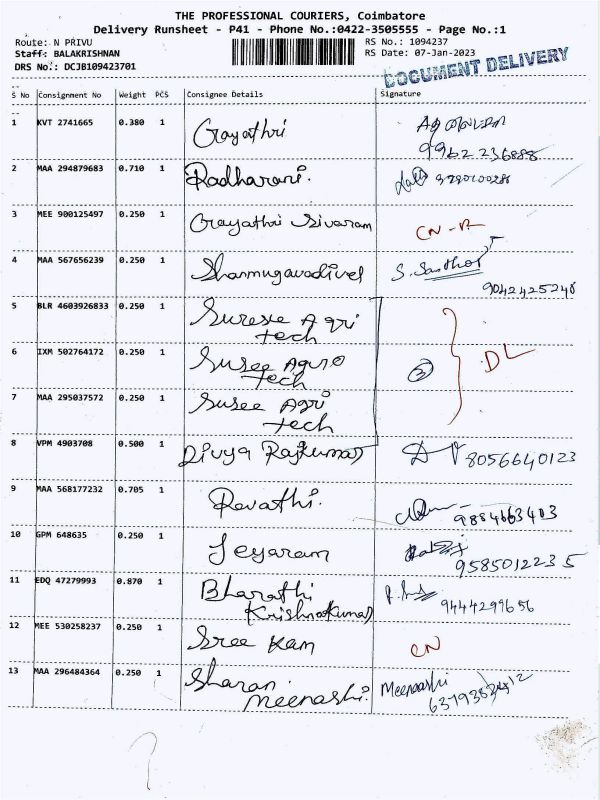 THE PROFESSIONAL COURIERS, Coimbatore
Delivery Runsheet - P41 - Phone No.:0422-3505555 - Page No.:1
Route: N PRIVU
RS No.: 1094237
Staff: BALAKRISHNAN
RS Date: 07-Jan-2023
DRS No.: DCJB109423701
DOCUMENT DELIVERY
S No Consignment No Weight PCS Consignee Details Signature
1 KVT 2741665 0.380 1 Gayathri
9962 236888
2 MAA 294879683 0.710 1 Radharani.
3 MEE 900125497 0.250 1 Gayathri Sivaram CN-R
4 MAA 567656239 0.250 1 Shanmugavadivel S. Santhos
9042425248
5 BLR 4603926833 0.250 1 Surese Agri
tech
6 IXM 502764172 0.250 1 Susee Aguro
tech
3 } DL
7 MAA 295037572 0.250 1 Susee Agri
tech
8 VPM 4903708 0.500 1 Divya Rajkumar 8056640123
9 MAA 568177232 0.705 1 Revathi.
9884663403
10 GPM 648635 0.250 1 Jeyaram
9585012235
11 EDQ 47279993 0.870 1 Bharathi
Krishnakumar
9444299656
12 MEE 530258237 0.250 1 Sree Ram CN
13 MAA 296484364 0.250 1 Sharan Meenashi
meenashi.